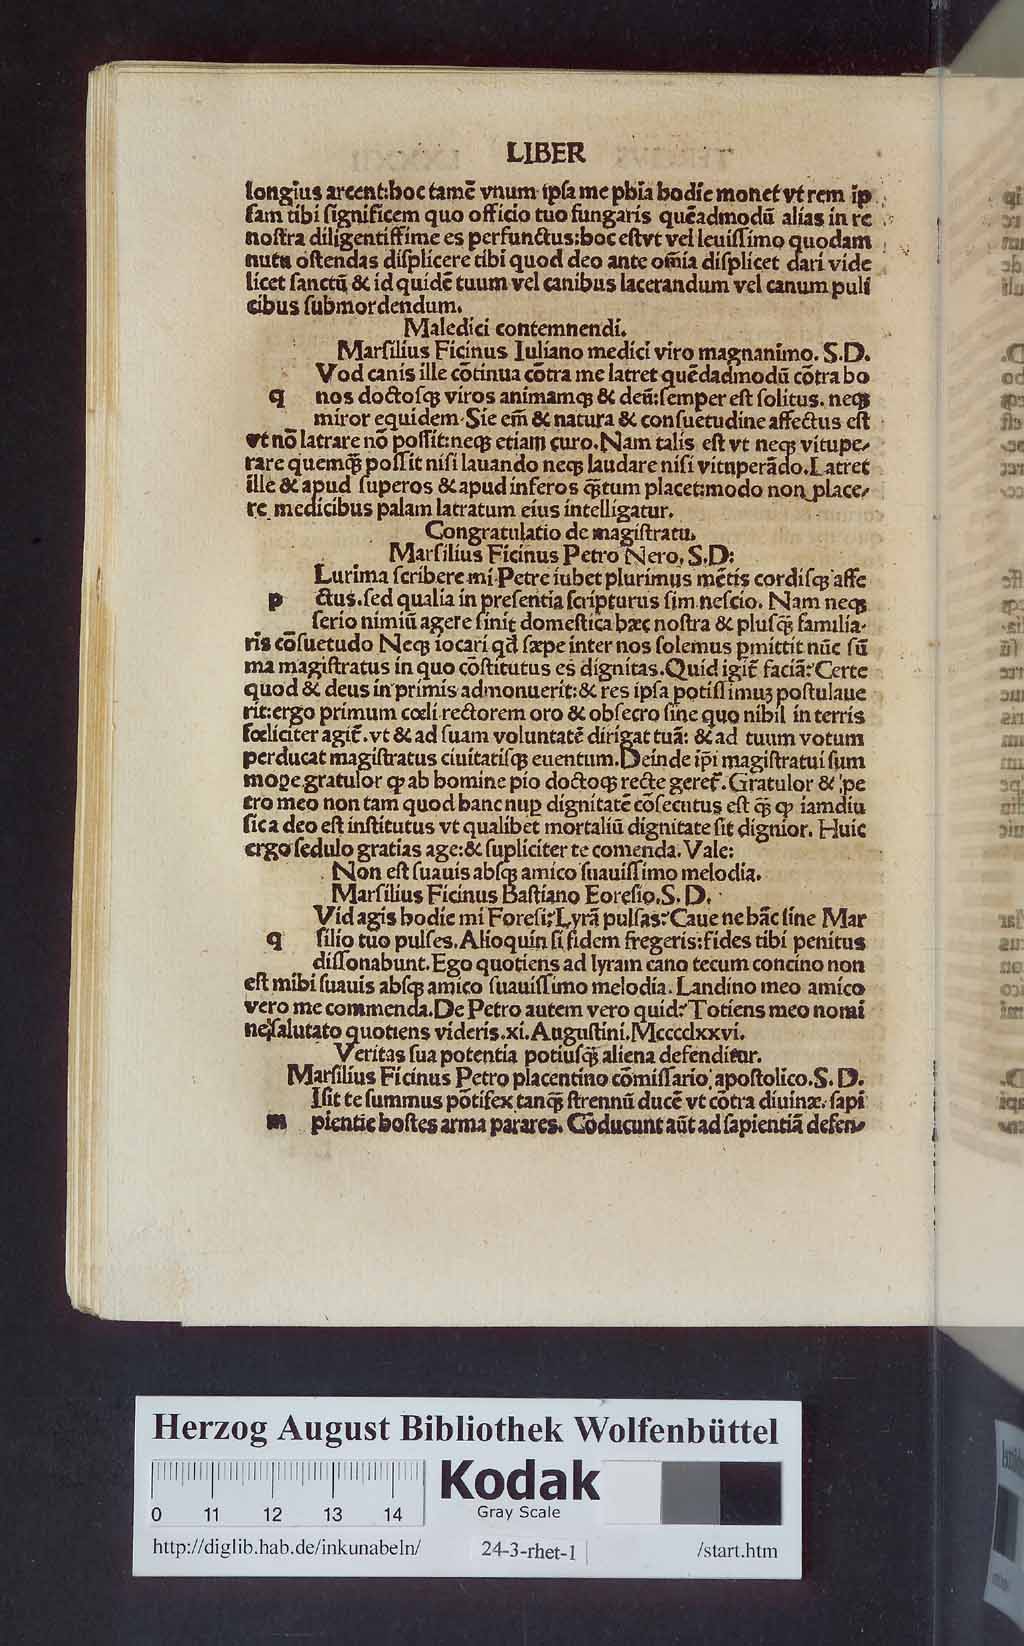 LIBER
longius arcent:hoc tamē vnum ipſa me phia hodie monet vt rem ip
ſam tibi ſignificem quo officio tuo fungaris quēadmodū alias in re
noſtra diligentiſſime es perfunctus:hoc eſtvt vel leuiſſimo quodam
nutu oſtendas diſplicere tibi quod deo ante om̄ia diſplicet dari vide
licet ſanctū & id quidē tuum vel canibus lacerandum vel canum puli
cibus ſubmordendum.
Maledici contemnendi.
Marſilius Ficinus Iuliano medici viro magnanimo. S.D.
Vod canis ille cōtinua cōtra me latret quēdadmodū cōtra bo
q nos doctoſqꝫ viros animamqꝫ & deū:ſemper eſt ſolitus. neqꝫ
miror equidem. Sie em̄ & natura & conſuetudine affectus eſt
vt nō latrare nō poſſit:neqꝫ etiam curo. Nam talis eſt vt neqꝫ vitupe⸗
rare quemqꝫ̄ poſſit niſi lauando neqꝫ laudare niſi vituperādo. Latret
ille & apud ſuperos & apud inferos qꝫ̄tum placet:modo non place⸗
re medicibus palam latratum eius intelligatur.
Congratulatio de magiſtratu.
Marſilius Ficinus Petro Nero. S.D:
Lurima ſcribere mi Petre iubet plurimus mētis cordiſqꝫ affe
p ctus.ſed qualia in preſentia ſcripturus ſim neſcio. Nam neqꝫ
ſerio nimiū agere ſinit domeſtica hæc noſtra & pluſqꝫ̄ familia⸗
ris cōſuetudo Neqꝫ iocari qd̄ ſæpe inter nos ſolemus ꝑmittit nūc ſū
ma magiſtratus in quo cōſtitutus es dignitas. Quid igit̄ faciā? Certe
quod & deus in primis admonuerit:& res ipſa potiſſimuꝫ poſtulaue
rit:ergo primum cœli rectorem oro & obſecro ſine quo nihil in terris
fœliciter agit̄. vt & ad ſuam voluntatē dirigat tuā: & ad tuum votum
perducat magiſtratus ciuitatiſqꝫ euentum. Deinde ip̄i magiſtratui ſum
moꝑe gratulor ꝙ ab homine pio doctoqꝫ recte geret̄. Gratulor & pe
tro meo non tam quod hanc nuꝑ dignitatē cōſecutus eſt qꝫ̄ ꝙ iamdiu
ſic a deo eſt inſtitutus vt qualibet mortaliū dignitate ſit dignior. Huic
ergo ſedulo gratias age:& ſupliciter te comenda. Vale:
Non eſt ſuauis abſqꝫ amico ſuauiſſimo melodia.
Marſilius Ficinus Baſtiano Eoreſio. S. D.
Vid agis hodie mi Foreſi? Lyrā pulſas? Caue ne hāc ſine Mar
q ſilio tuo pulſes. Alioquin ſi fidem fregeris:fides tibi penitus
diſſonabunt. Ego quotiens ad lyram cano tecum concino non
eſt mihi ſuauis abſqꝫ amico ſuauiſſimo melodia. Landino meo amico
vero me commenda. De Petro autem vero quid? Totiens meo nomi
ne ſalutato quotiens videris. xi. Auguſtini. Mccccdxxvi.
Veritas ſua potentia potiuſqꝫ̄ aliena defenditur.
Marſilius Ficinus Petro placentino cōmiſſario apoſtolico. S. D.
Iſit te ſummus pōtifex tanqꝫ̄ ſtrennū ducē vt cōtra diuinæ ſapi
m pientie hoſtes arma parares. Cōducunt aūt ad ſapientiā defen⸗
Herzog August Bibliothek Wolfenbüttel
Kodak
Gray Scale
0 11 12 13 14
http://diglib.hab.de/inkunabeln/ 24-3-rhet-1 /start.htm